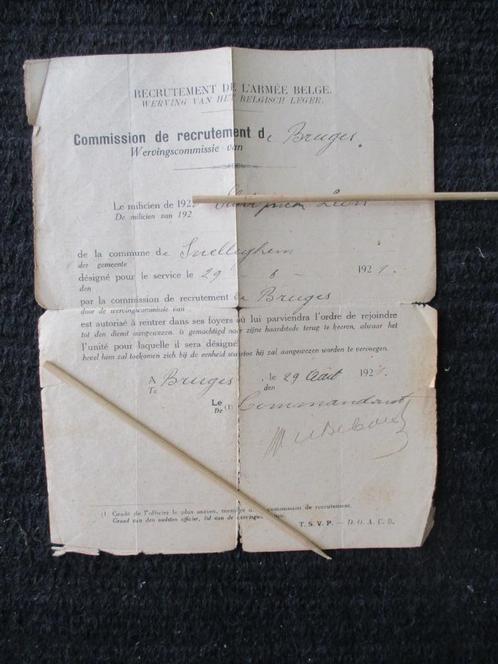 RECRUTEMENT DE L'ARMÉE BELGE.
WERVING VAN HET BELGISCH LEGER.
Commission de recrutement de Bruges.
Wervingscommissie van
Le milicien de 192
De milicien van 192
de la commune de Snelleghem
der gemeente
désigné pour le service le 29 - 8 - 192
den
par la commission de recrutement de Bruges
door de wervingscommissie van
est autorisé à rentrer dans ses foyers où lui parviendra l'ordre de rejoindre
tot den dienst aangewezen, is gemachtigd naar zijne haardstede terug te keeren, alwaar het
l'unité pour laquelle il sera désigné
bevel hem zal toekomen zich bij de eenheid waarvoor hij zal aangewezen worden te vervoegen.
A Bruges, le 29 Août 192
Te den
Le (1) Commandant
De
(1) Grade de l'officier le plus ancien, membre de la commission de recrutement.
Graad van den oudsten officier, lid van de
T. S. V. P. — D. O. A. U. B.